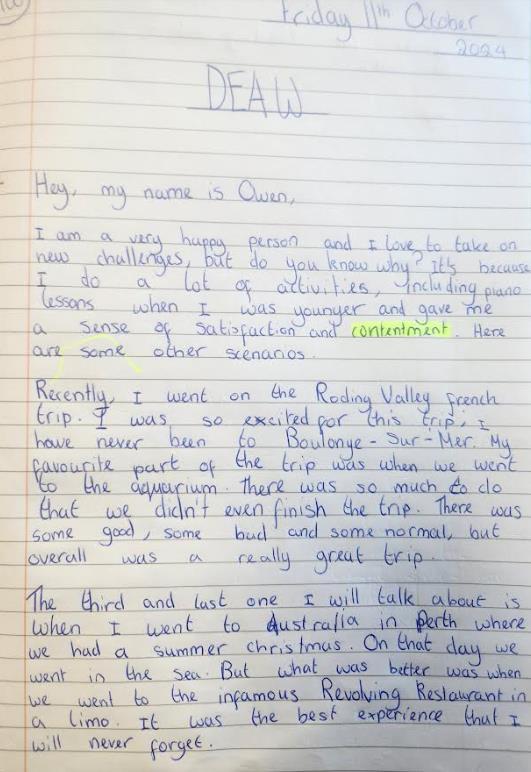 Friday 11th October
2024
DEAW
Hey, my name is Owen,
I am a very happy person and I love to take on
new challenges, but do you know why? It's because
I do a lot of activities, including piano
lessons when I was younger and gave me
a sense of satisfaction and contentment. Here
are some other scenarios.
Recently, I went on the Roding Valley french
trip. I was so excited for this trip, I
have never been to Boulonye-Sur-Mer. My
favourite part of the trip was when we went
to the aquarium. There was so much to do
that we didn't even finish the trip. There was
some good, some bad and some normal, but
overall was a really great trip.
The third and last one I will talk about is
when I went to Australia in Perth where
we had a summer christmas. On that day we
went in the sea. But what was better was when
we went to the infamous Revolving Restaurant in
a limo. It was the best experience that I
will never forget.